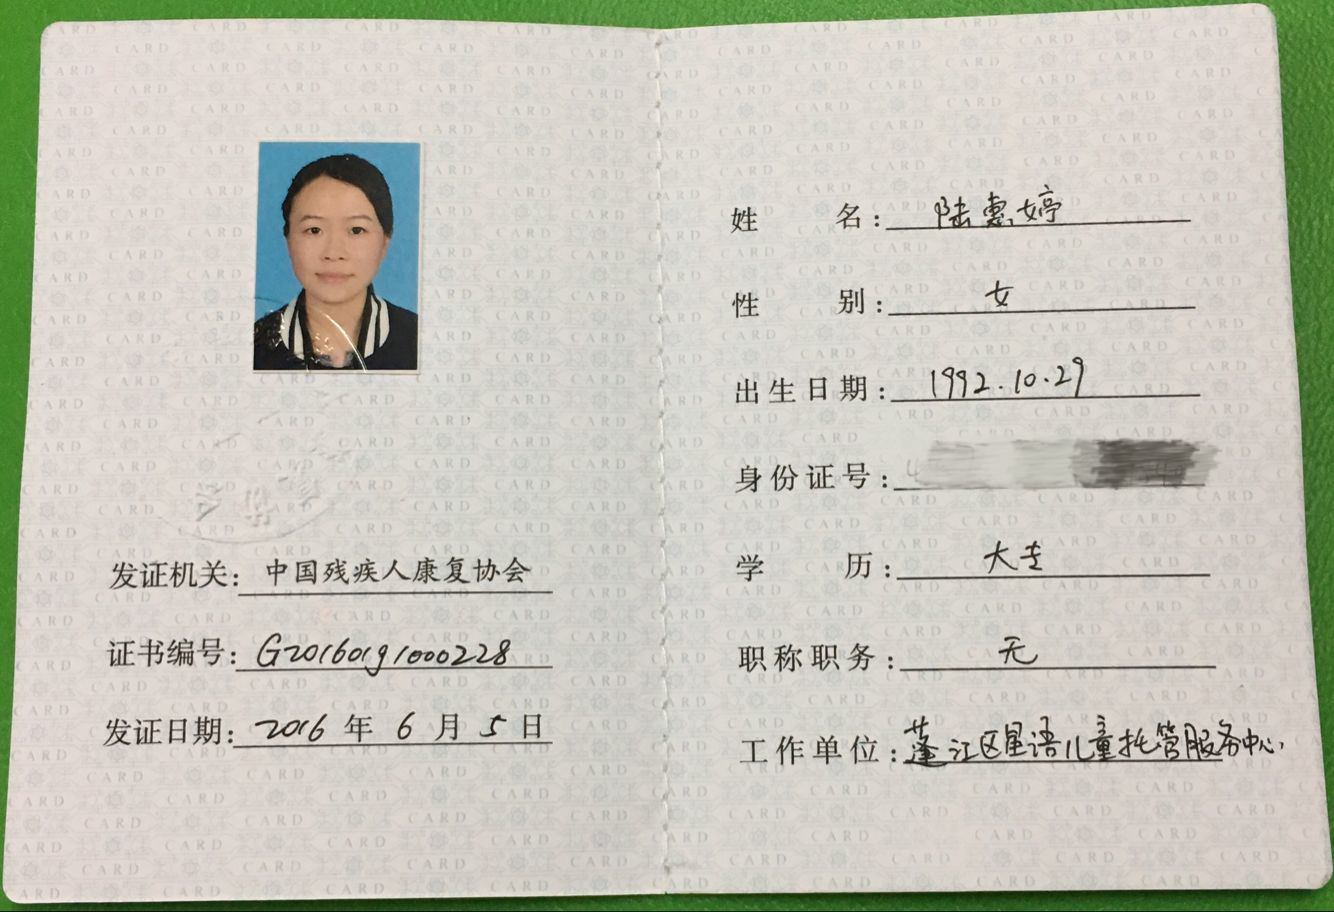 发证机关：中国残疾人康复协会
证书编号：G20160191000228
发证日期：2016 年 6 月 5 日
姓名：陆惠婷
性别：女
出生日期：1992.10.29
身份证号：
学历：大专
职称职务：无
工作单位：蓬江区星语儿童托管服务中心